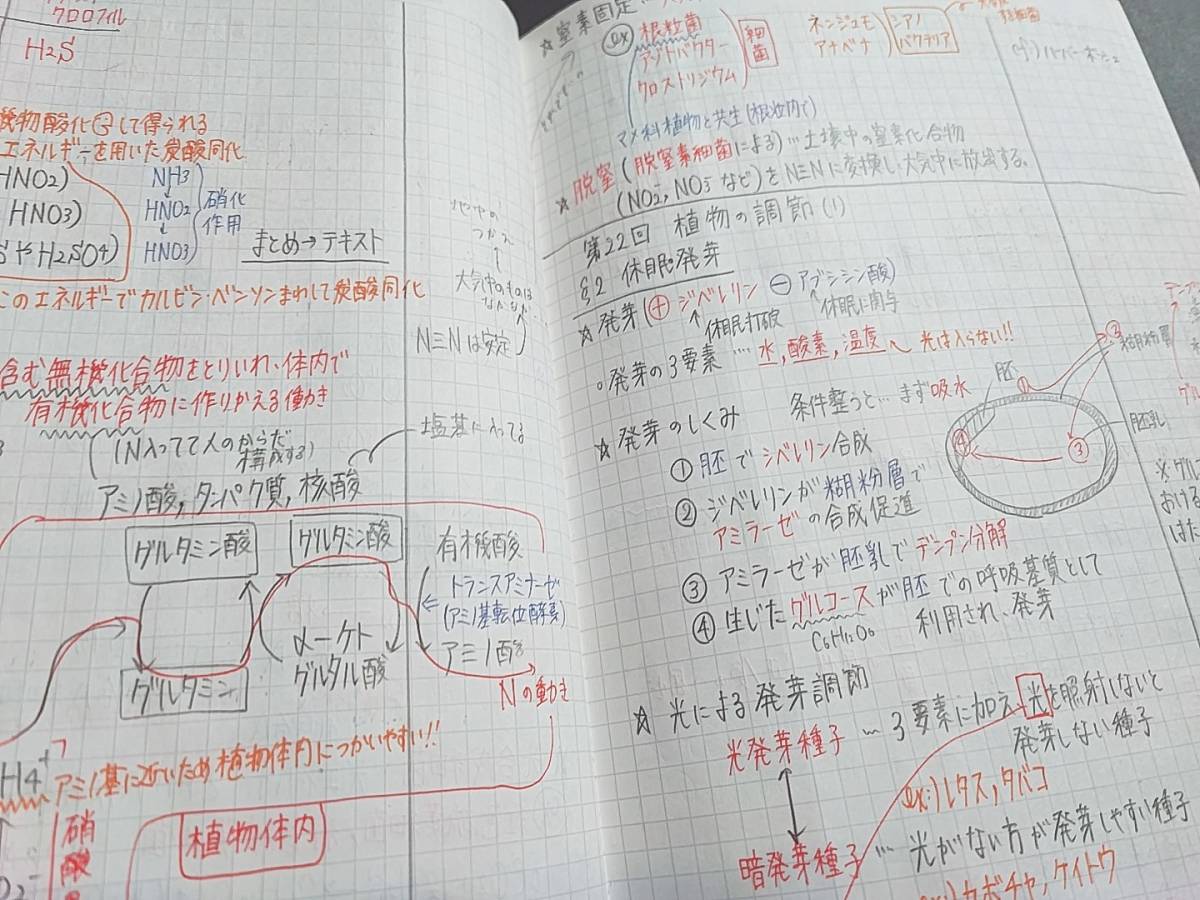 クロロフィル
H2S
機物酸化して得られる
エネルギーを用いた炭酸同化
HNO2)
HNO3)
SやH2SO4)
NH3
HNO2
HNO3
硝化
作用
まとめ→テキスト
このエネルギーでカルビン・ベンソンまわして炭酸同化
含む無機化合物をとりいれ、体内で
有機化合物に作りかえる働き
(N入ってて人のからだ
構成する)
塩基に入ってる
アミノ酸,タンパク質,核酸
グルタミン酸
グルタミン酸
有機酸
トランスアミナーゼ
(アミノ基転位酵素)
ケト
グルタル酸
グルタミン
アミノ酸
Nの動き
H4+
アミノ基に近いため植物体内につかいやすい!!
硝
植物体内
大気中のものは
N≡Nは安定
☆窒素固定
ex)
根粒菌
アゾトバクター
クロストリジウム
細菌
ネンジュモ
アナベナ
シアノ
バクテリア
マメ科植物と共生(根粒内で)
☆脱窒(脱窒素細菌による)…土壌中の窒素化合物
(NO2-, NO3-など)をN≡Nに変換し、大気中に放出する。
第22回 植物の調節(1)
§2 休眠・発芽
☆発芽(⊕ジベレリン ⊖アブシシン酸)
↑休眠打破
↑休眠に関与
○発芽の3要素…水,酸素,温度~光は入らない!!
☆発芽のしくみ 条件整うと…まず吸水
①胚でジベレリン合成
②ジベレリンが糊粉層で
アミラーゼの合成促進
③アミラーゼが胚乳でデンプン分解
④生じたグルコースが胚での呼吸基質として
C6H12O6
利用され、発芽
胚
①
②
糊粉層
胚乳
③
④
☆光による発芽調節
光発芽種子…3要素に加え、光を照射しないと
発芽しない種子
ex)レタス,タバコ
暗発芽種子…光がない方が発芽しやすい種子
ex)カボチャ,ケイトウ